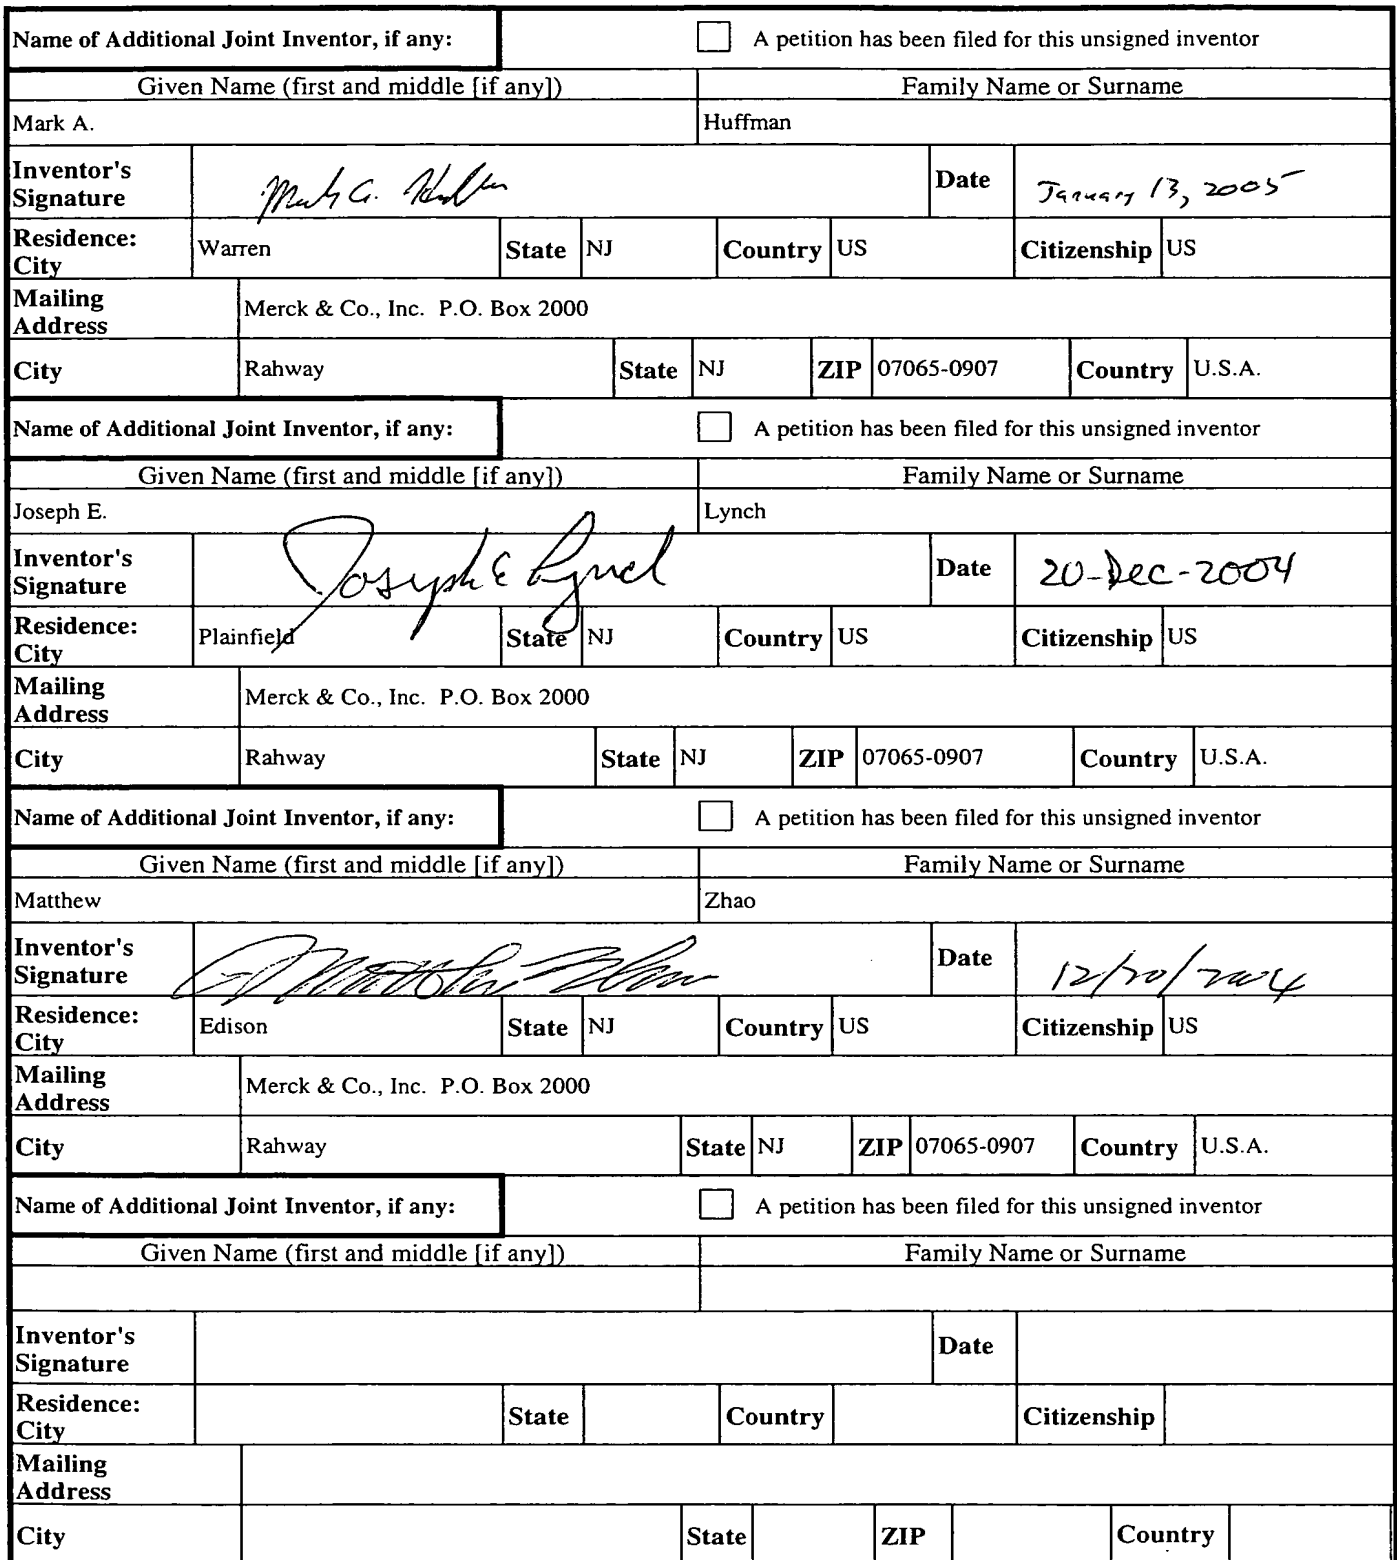 Name of Additional Joint Inventor, if any: A petition has been filed for this unsigned inventor
Given Name (first and middle [if any]) Family Name or Surname
Mark A. Huffman
Inventor's Signature Mark A. Huffman Date January 13, 2005
Residence: City Warren State NJ Country US Citizenship US
Mailing Address Merck & Co., Inc. P.O. Box 2000
City Rahway State NJ ZIP 07065-0907 Country U.S.A.
Name of Additional Joint Inventor, if any: A petition has been filed for this unsigned inventor
Given Name (first and middle [if any]) Family Name or Surname
Joseph E. Lynch
Inventor's Signature Joseph E Lynch Date 20-Dec-2004
Residence: City Plainfield State NJ Country US Citizenship US
Mailing Address Merck & Co., Inc. P.O. Box 2000
City Rahway State NJ ZIP 07065-0907 Country U.S.A.
Name of Additional Joint Inventor, if any: A petition has been filed for this unsigned inventor
Given Name (first and middle [if any]) Family Name or Surname
Matthew Zhao
Inventor's Signature Matthew Zhao Date 12/20/2004
Residence: City Edison State NJ Country US Citizenship US
Mailing Address Merck & Co., Inc. P.O. Box 2000
City Rahway State NJ ZIP 07065-0907 Country U.S.A.
Name of Additional Joint Inventor, if any: A petition has been filed for this unsigned inventor
Given Name (first and middle [if any]) Family Name or Surname
Inventor's Signature Date
Residence: City State Country Citizenship
Mailing Address
City State ZIP Country